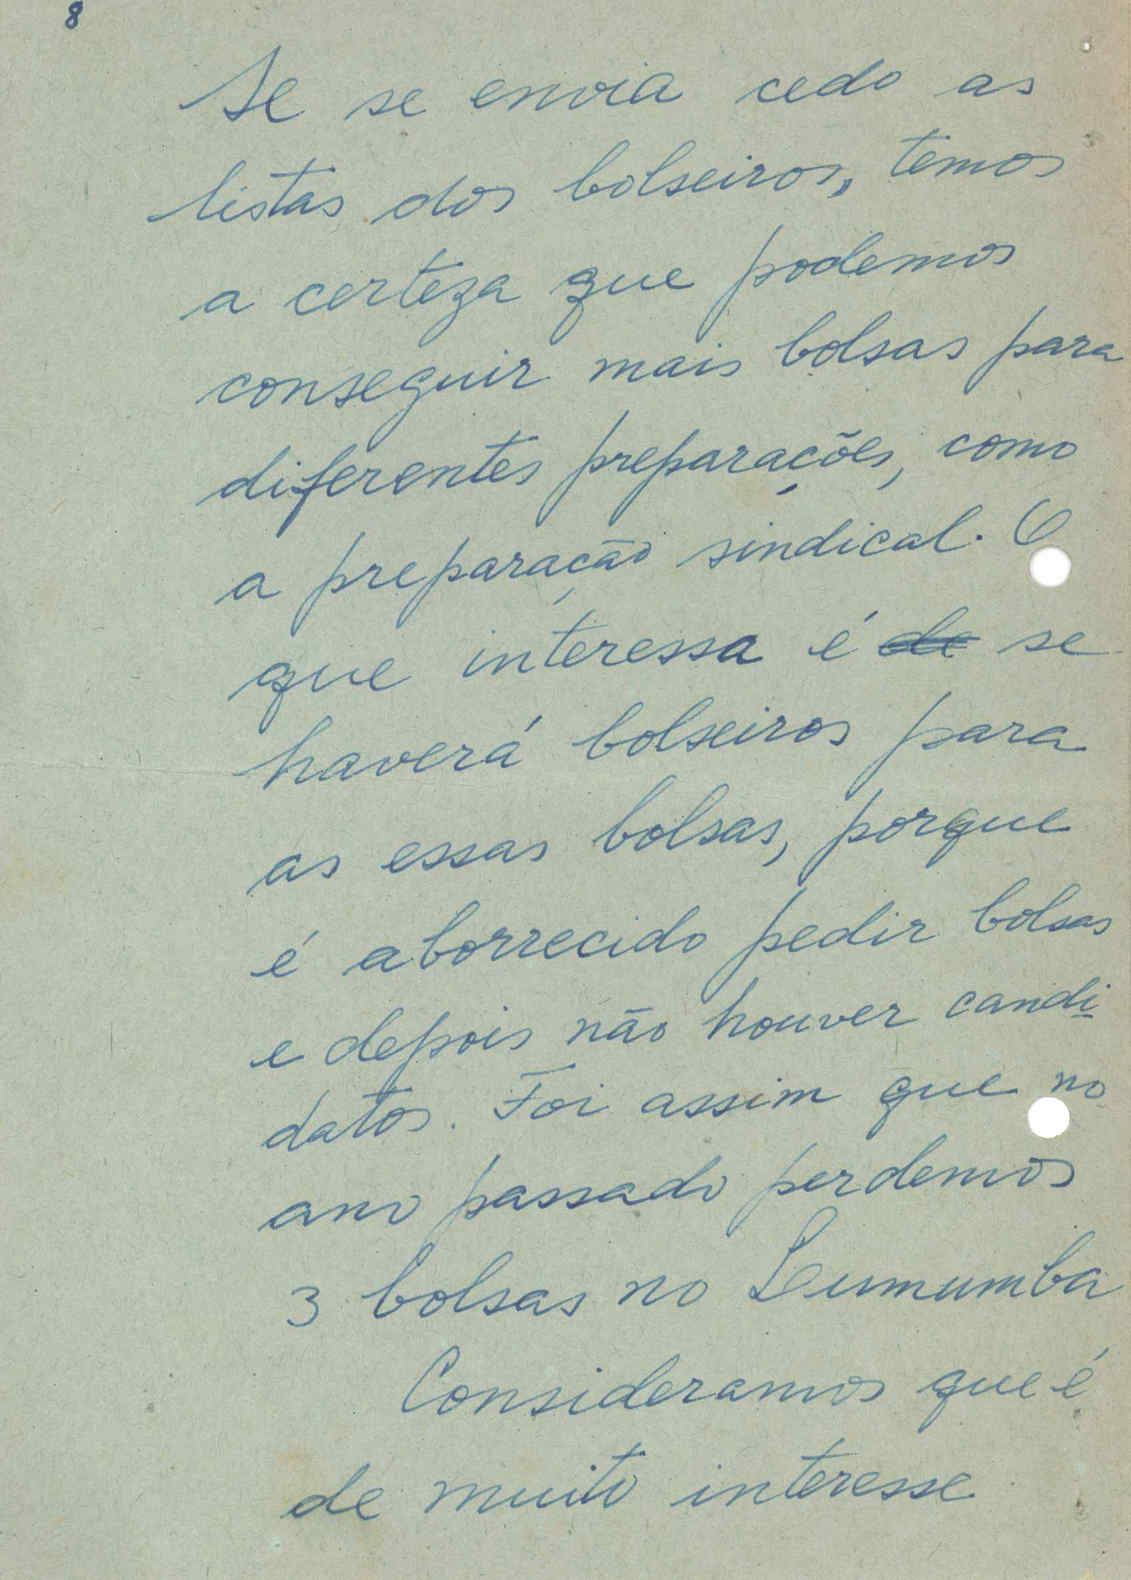 8
Se se envia cedo as
listas dos bolseiros, temos
a certeza que podemos
conseguir mais bolsas para
diferentes preparações, como
a preparação sindical. O
que interessa é de se
haverá bolseiros para
as essas bolsas, porque
é aborrecido pedir bolsas
e depois não houver candi
datos. Foi assim que no
ano passado perdemos
3 bolsas no Lumumba
Consideramos que é
de muito interesse